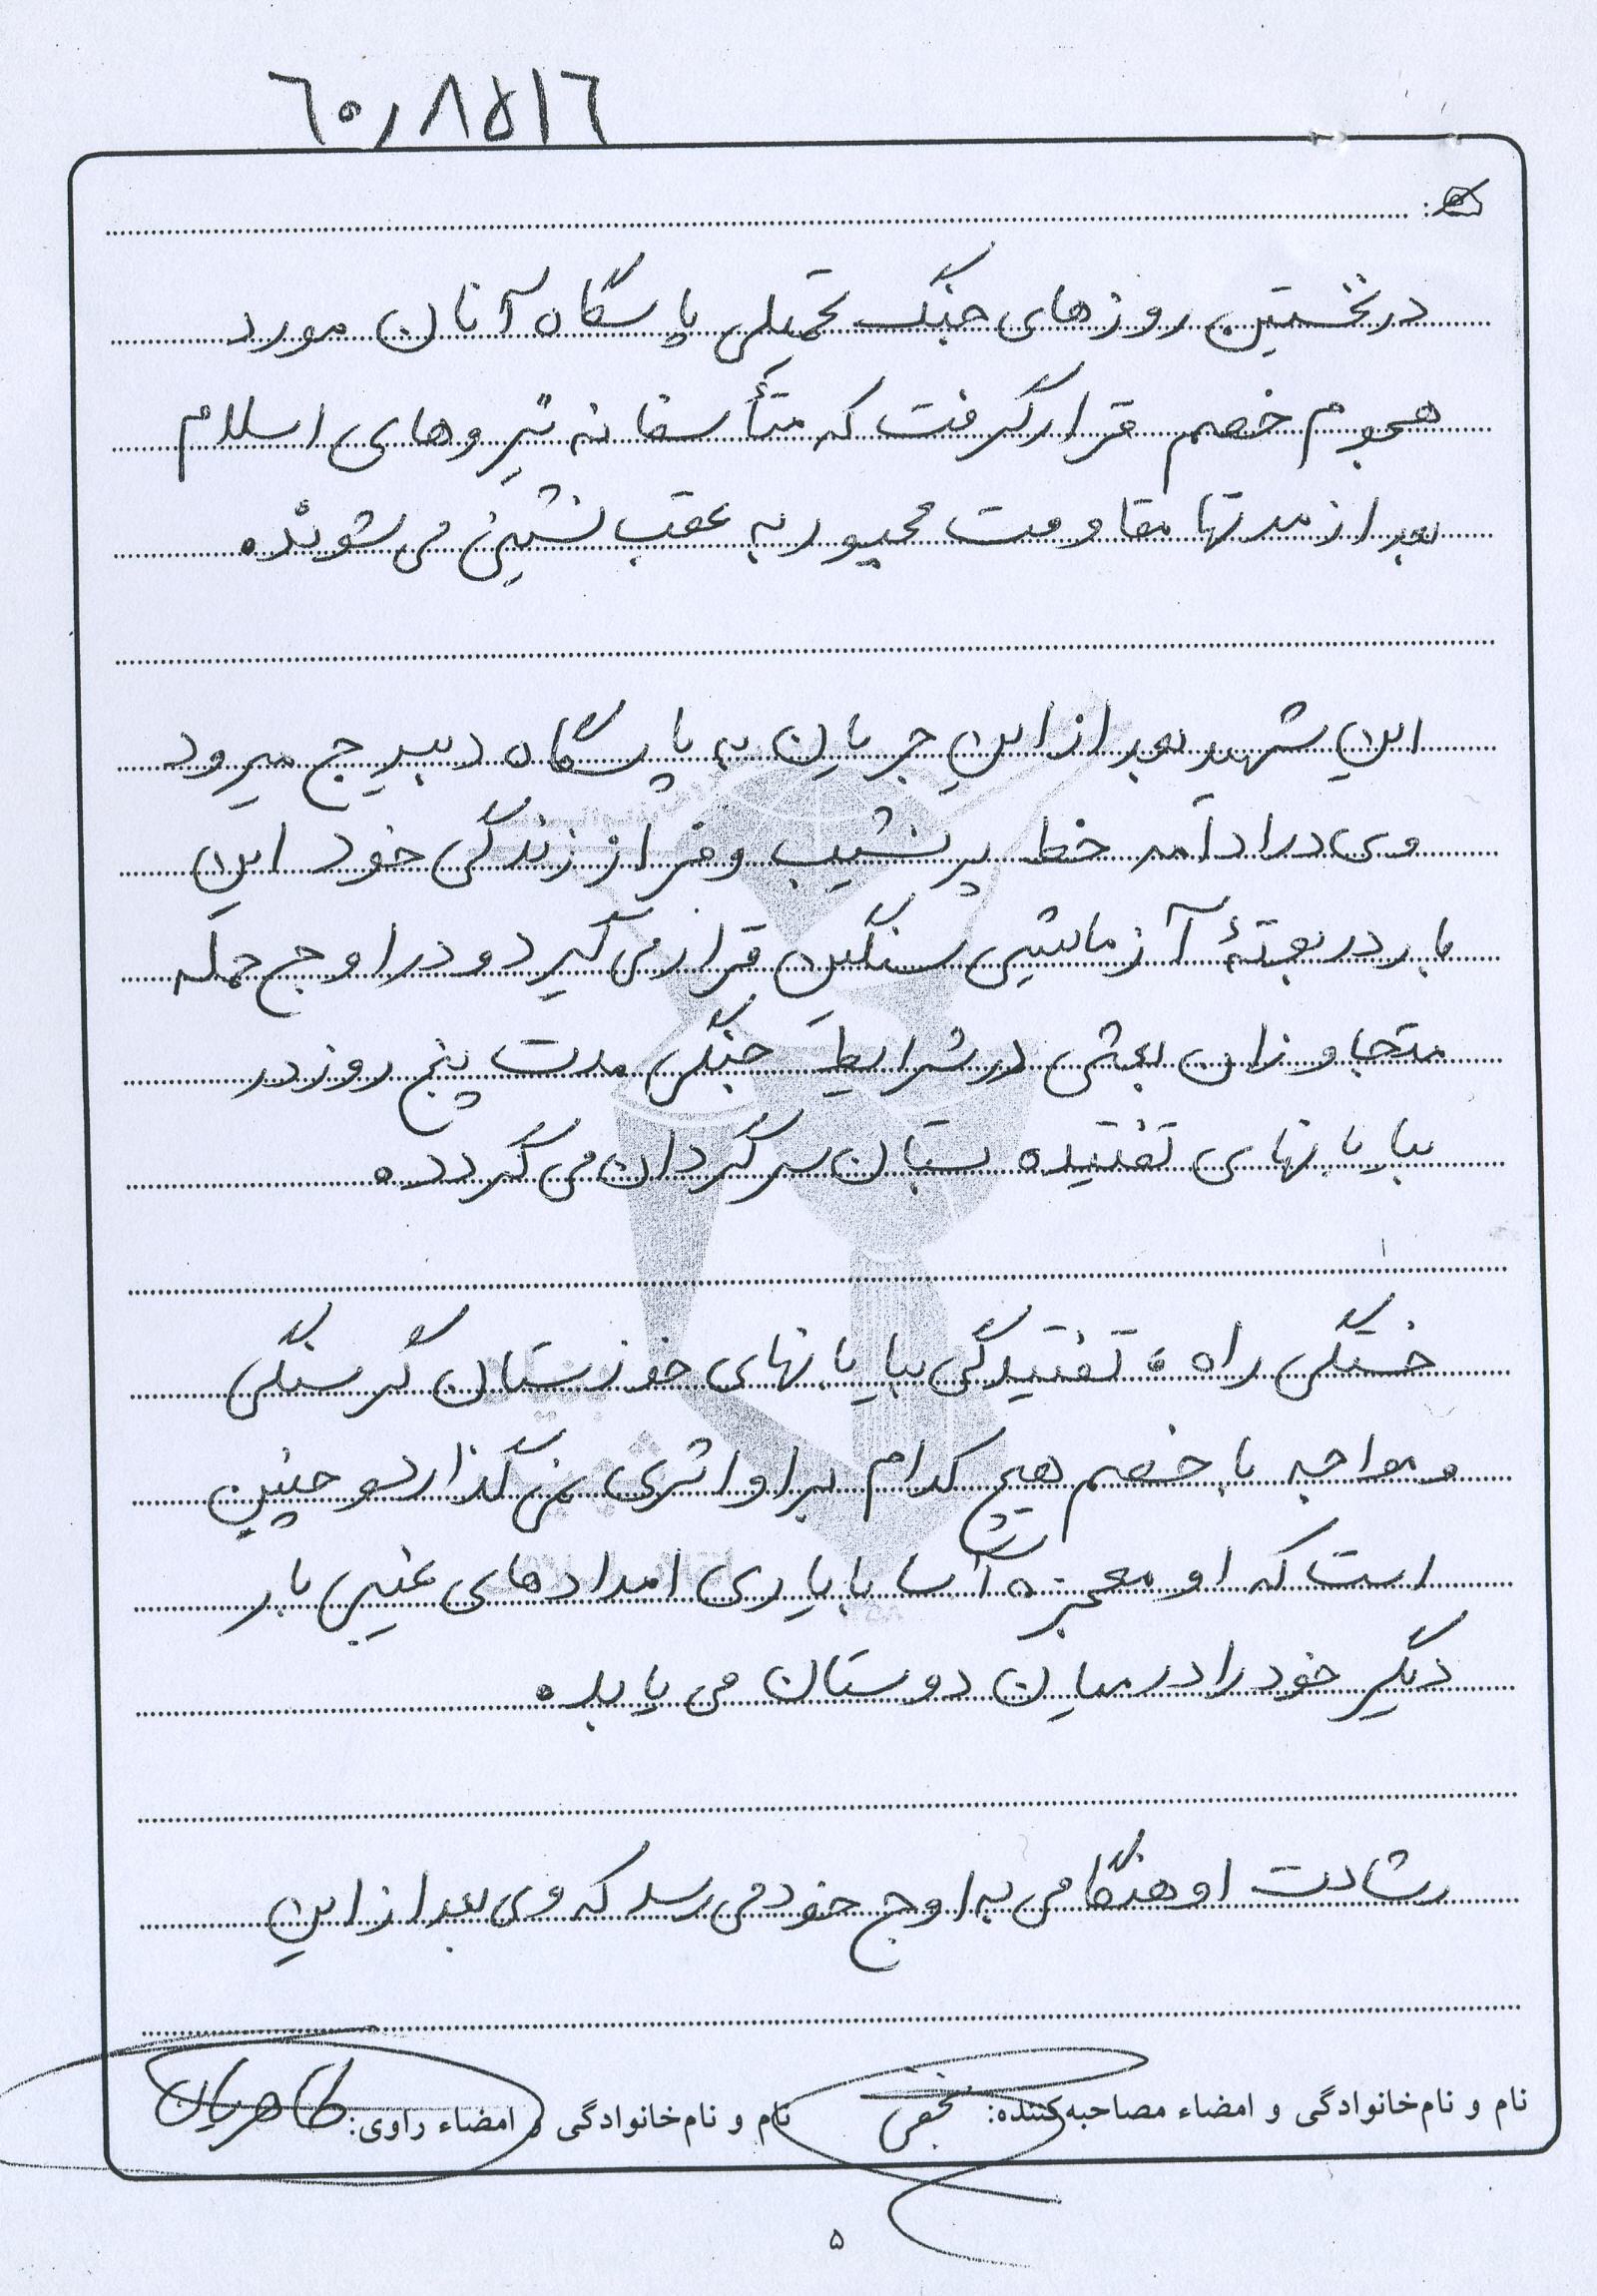 ٦٠٫٨٥١٦
در نخستین روزهای جنگ تحمیلی پاسگاه آنان مورد
هجوم خصم قرار گرفت که متأسفانه نیروهای اسلام
بعد از مدتها مقاومت مجبور به عقب نشینی می شوند.
این شهید بعد از این جریان به پاسگاه دبیرج میرود
وی در ادامه خط پر نشیب و فراز زندگی خود این
بار در بوتهٔ آزمایشی سنگین قرار می گیرد و در اوج حمله
متجاوزان بعثی در شرایط جنگی مدت پنج روز در
بیابانهای تفتیده بستان سرگردان می گردد.
خستگی راه، تفتیدگی بیابانهای خوزستان گرسنگی
و مواجه با خصم هیچ کدام بر او اثری نمی گذارد و چنین
است که او معجزه آسا با یاری امدادهای غیبی بار
دیگر خود را در میان دوستان می یابد.
رشادت او هنگامی به اوج خود می رسد که وی بعد از این
نام و نام‌خانوادگی و امضاء مصاحبه‌کننده: نجفی نام و نام‌خانوادگی و امضاء راوی: طاهریان
۵